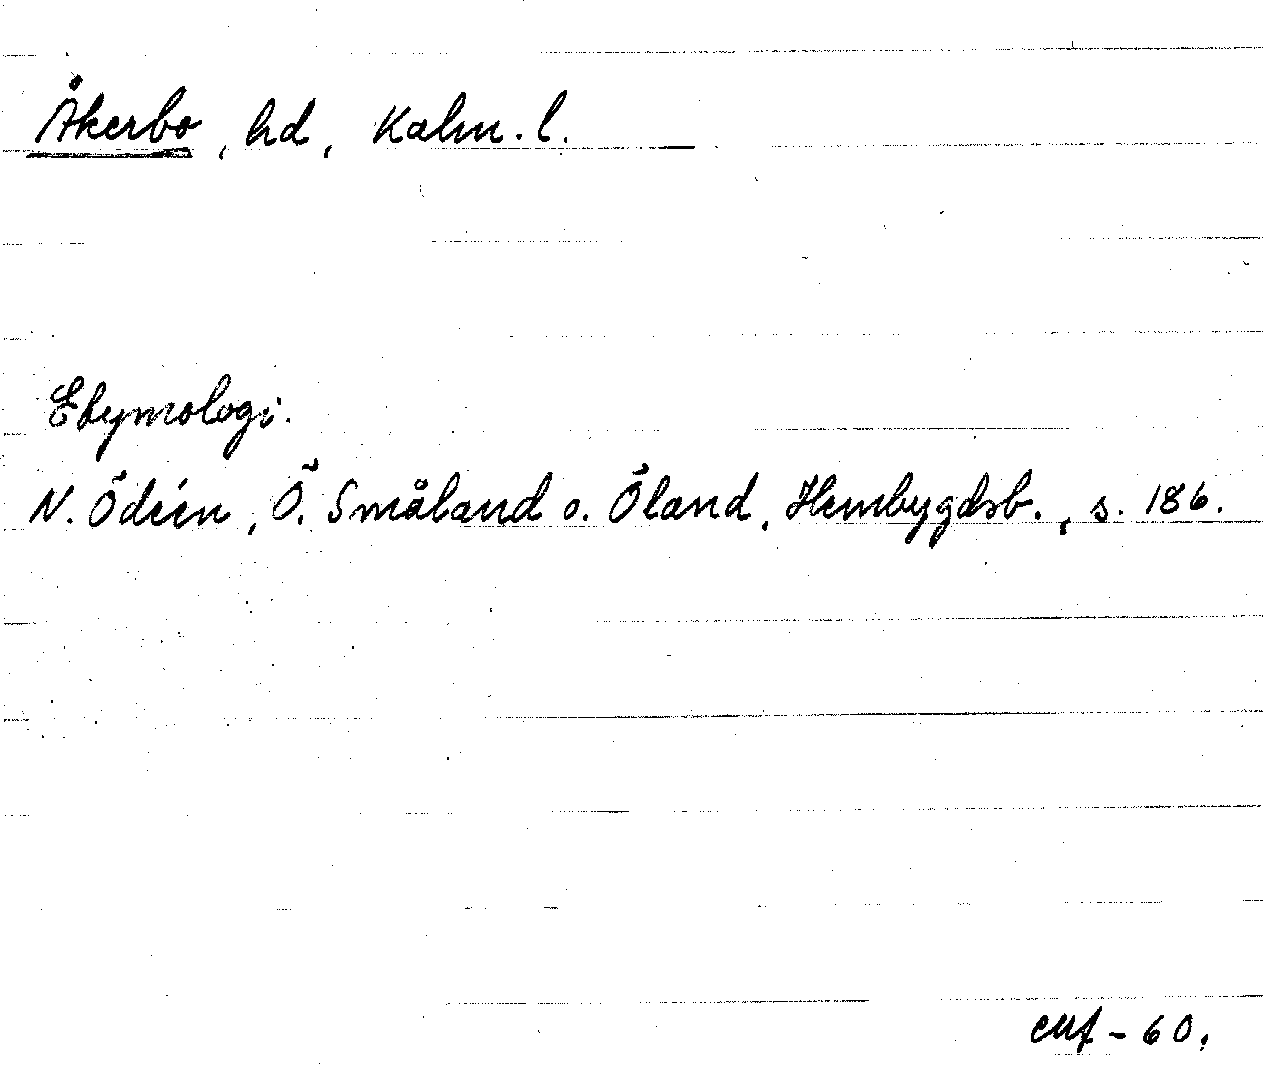 Åkerbo, hd, Kalm. l.
Etymologi.
N. Ödéen, Ö. Småland o. Öland, Hembygdsb., s. 186.
- 60.